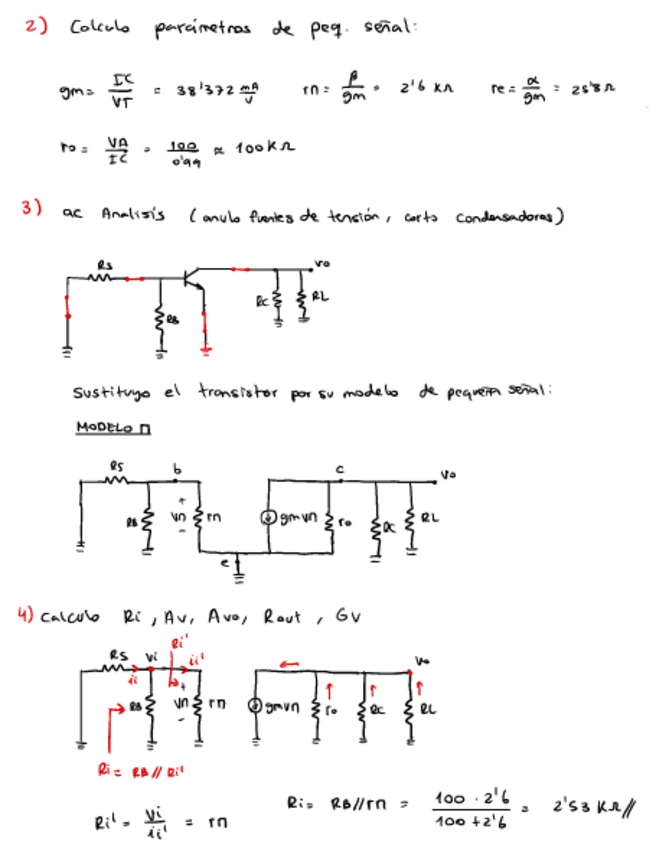 2) Calculo parámetros de peq. señal:
gm = IC/VT = 38'372 mA/V    rπ = β/gm = 2'6 KΩ    re = α/gm = 25'8 Ω
ro = VA/IC = 100/0'99 ≈ 100KΩ
3) ac Analisís (anulo fuentes de tensión, corto condensadores)
Rs
vo
RB
RC
RL
Sustituyo el transistor por su modelo de pequeña señal:
MODELO π
Rs b c vo
RB + vπ - rπ gmvπ ro RC RL
e
4) Calculo Ri, Av, Avo, Rout, Gv
Ri'
Rs vi ii' vo
ii
RB + vπ - rπ gmvπ ro RC RL
Ri = RB // Ri'
Ri' = vi/ii' = rπ    Ri = RB//rπ = 100 · 2'6/100 + 2'6 = 2'53 KΩ//